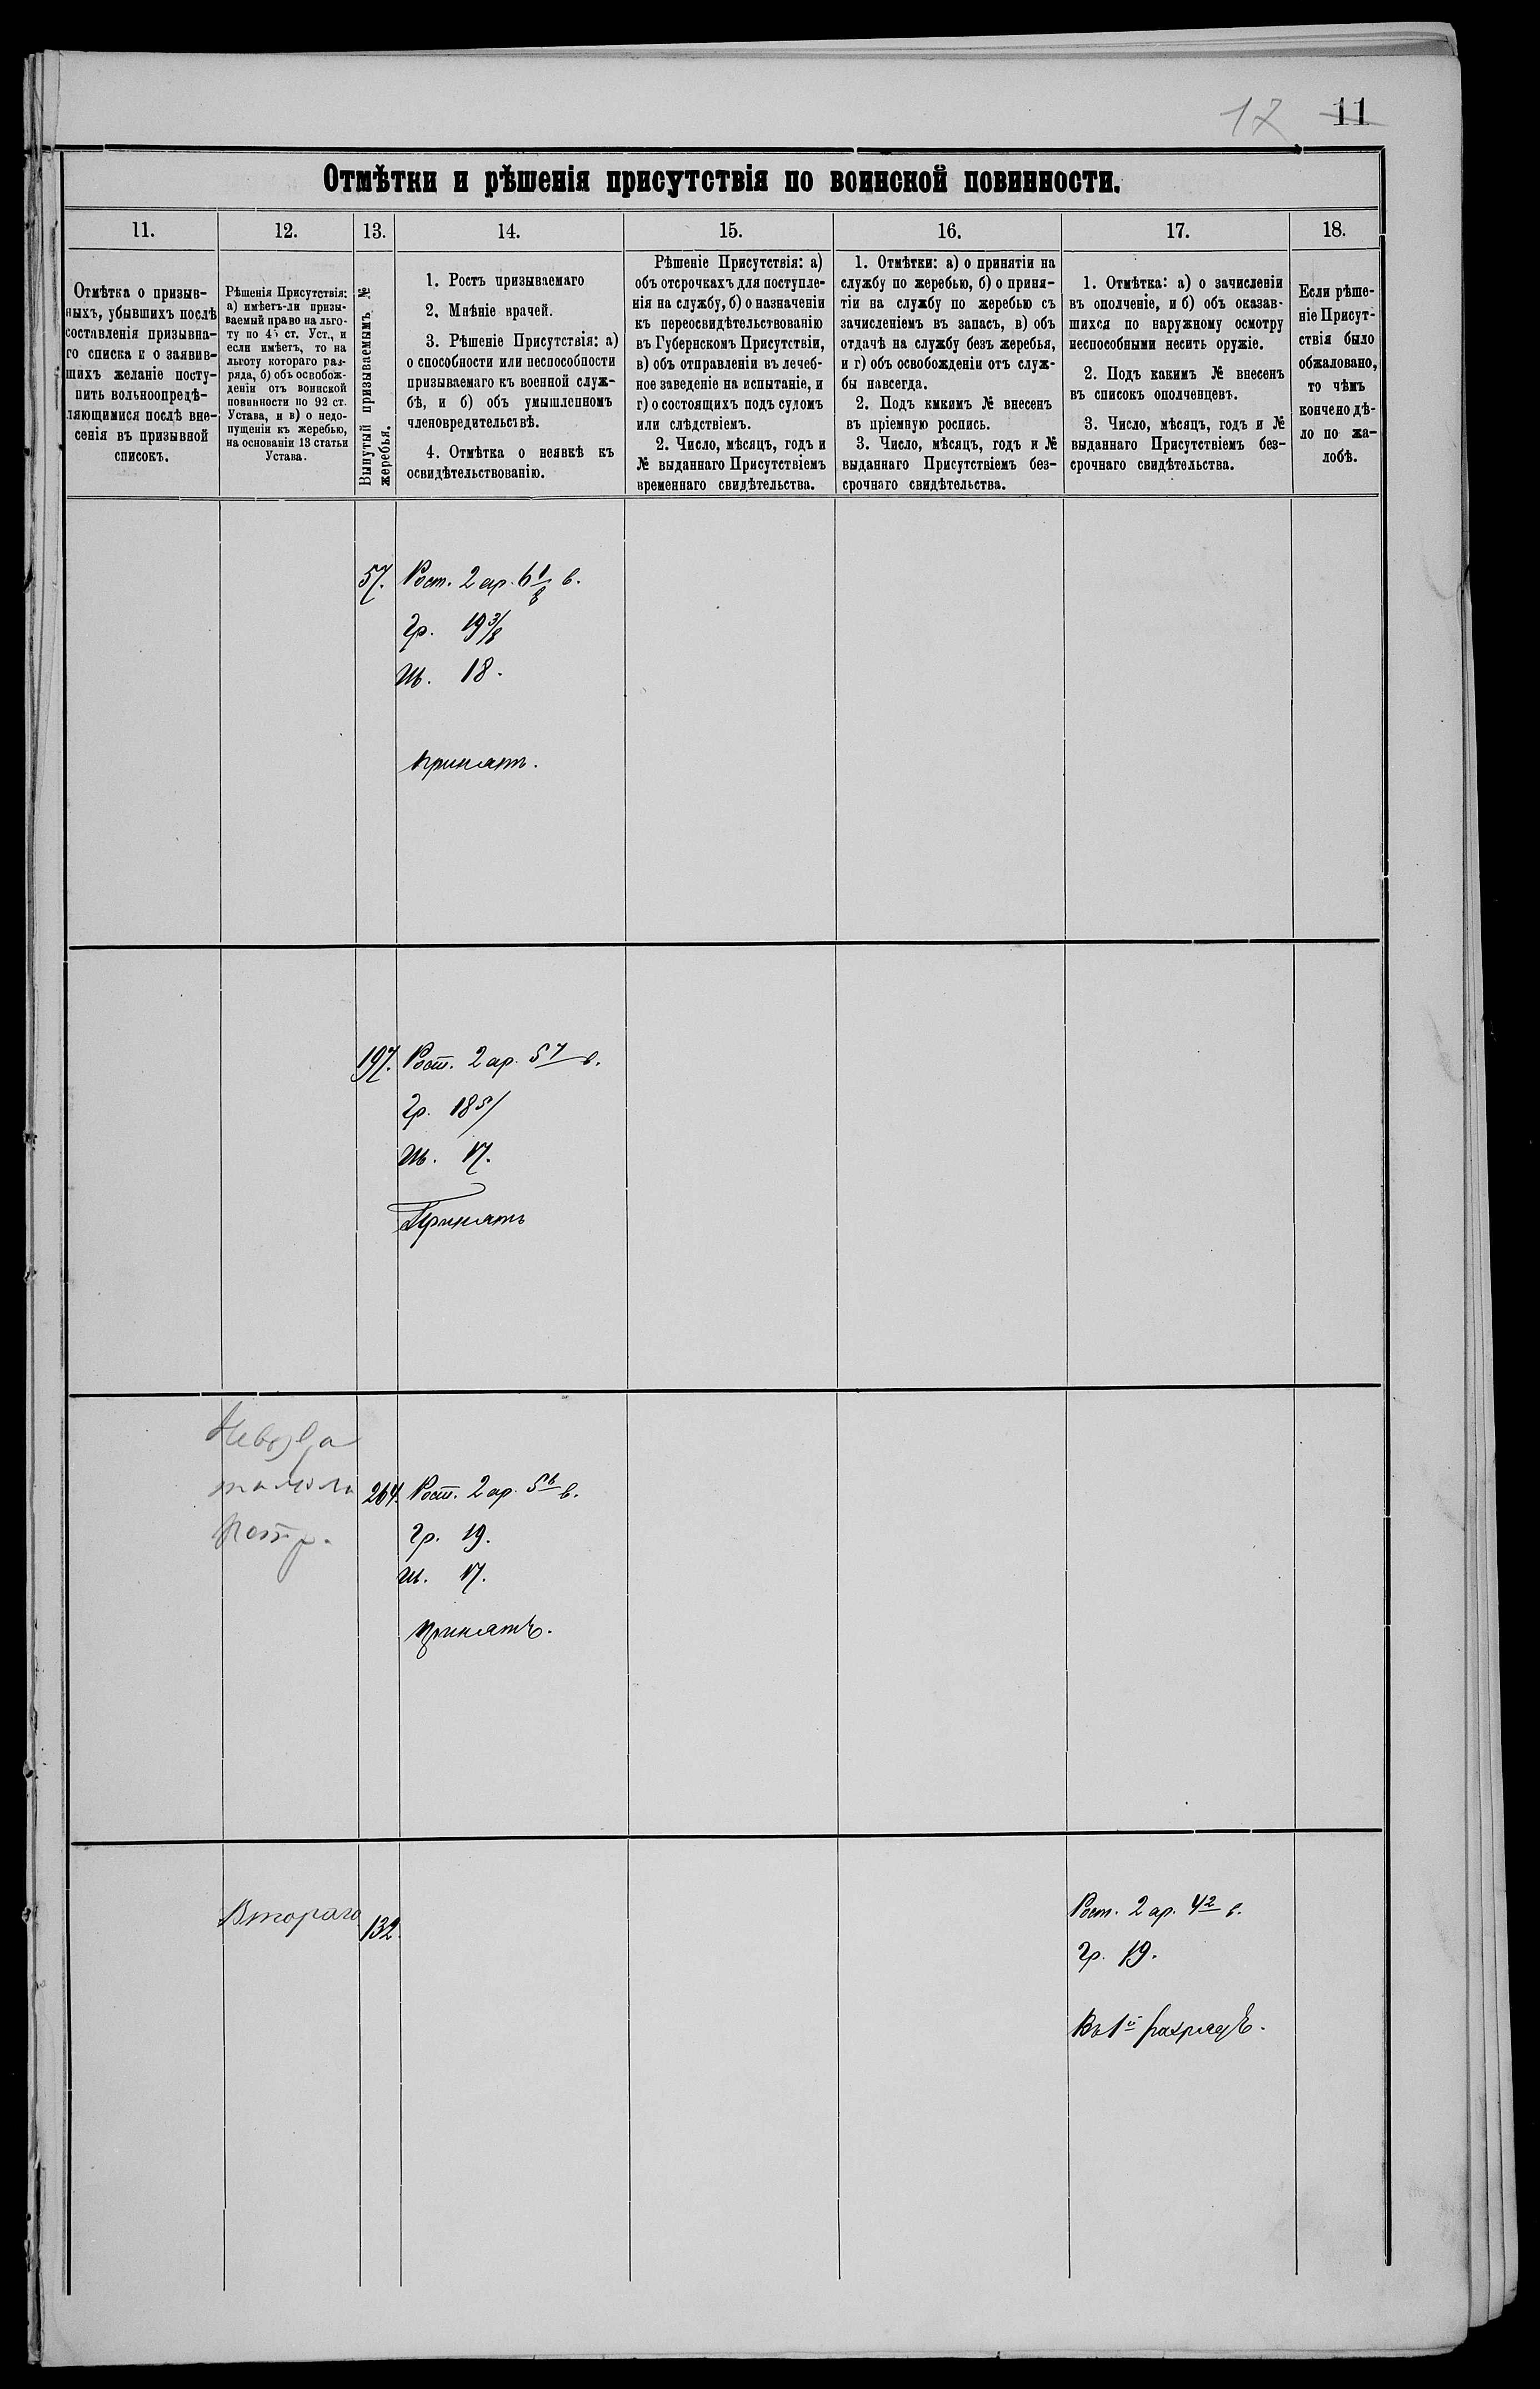 17 11
Отмѣтки и рѣшенія присутствія по воинской повинности.
11.
12.
13.
14.
15.
16.
17.
18.
Отмѣтка о призыв-
ныхъ, убывшихъ послѣ
составленія призывна-
го списка и о заявив-
шихъ желаніе посту-
пить вольноопредѣ-
ляющимися послѣ вне-
сенія въ призывной
списокъ.
Рѣшенія Присутствія:
а) имѣетъ-ли призы-
ваемый право на льго-
ту по 45 ст. Уст., и
если имѣетъ, то на
льготу котораго раз-
ряда, б) объ освобож-
деніи отъ воинской
повинности по 92 ст.
Устава, и в) о недо-
пущеніи къ жеребью,
на основаніи 13 статьи
Устава.
Вынутый призываемымъ №
жеребья.
1. Ростъ призываемаго
2. Мнѣніе врачей.
3. Рѣшеніе Присутствія: а)
о способности или неспособности
призываемаго къ военной служ-
бѣ, и б) объ умышленномъ
членовредительствѣ.
4. Отмѣтка о неявкѣ къ
освидѣтельствованію.
Рѣшеніе Присутствія: а)
объ отсрочкахъ для поступле-
нія на службу, б) о назначеніи
къ переосвидѣтельствованію
въ Губернскомъ Присутствіи,
в) объ отправленіи въ лечеб-
ное заведеніе на испытаніе, и
г) о состоящихъ подъ судомъ
или слѣдствіемъ.
2. Число, мѣсяцъ, годъ и
№ выданнаго Присутствіемъ
временнаго свидѣтельства.
1. Отмѣтки: а) о принятіи на
службу по жеребью, б) о приня-
тіи на службу по жеребью съ
зачисленіемъ въ запасъ, в) объ
отдачѣ на службу безъ жеребья,
и г) объ освобожденіи отъ служ-
бы навсегда.
2. Подъ кикимъ № внесенъ
въ пріемную роспись.
3. Число, мѣсяцъ, годъ и №
выданнаго Присутствіемъ без-
срочнаго свидѣтельства.
1. Отмѣтка: а) о зачисленіи
въ ополченіе, и б) объ оказав-
шихся по наружному осмотру
неспособными несить оружіе.
2. Подъ какимъ № внесенъ
въ списокъ ополченцевъ.
3. Число, мѣсяцъ, годъ и №
выданнаго Присутствіемъ без-
срочнаго свидѣтельства.
Если рѣше-
ніе Присут-
ствія было
обжаловано,
то чѣмъ
кончено дѣ-
ло по жа-
лобѣ.
57. Рост. 2 ар. 6 1/8 в.
Гр. 19 3/8
Ш. 18.
Принятъ.
197. Рост. 2 ар. 5 7 в.
Гр. 18 5/
Ш. 17.
Принятъ
264. Рост. 2 ар. 5 6 в.
Гр. 19.
Ш. 17.
Принятъ.
Втораго 132.
Рост. 2 ар. 4 2 в.
Гр. 19.
Въ 1й разрядъ.